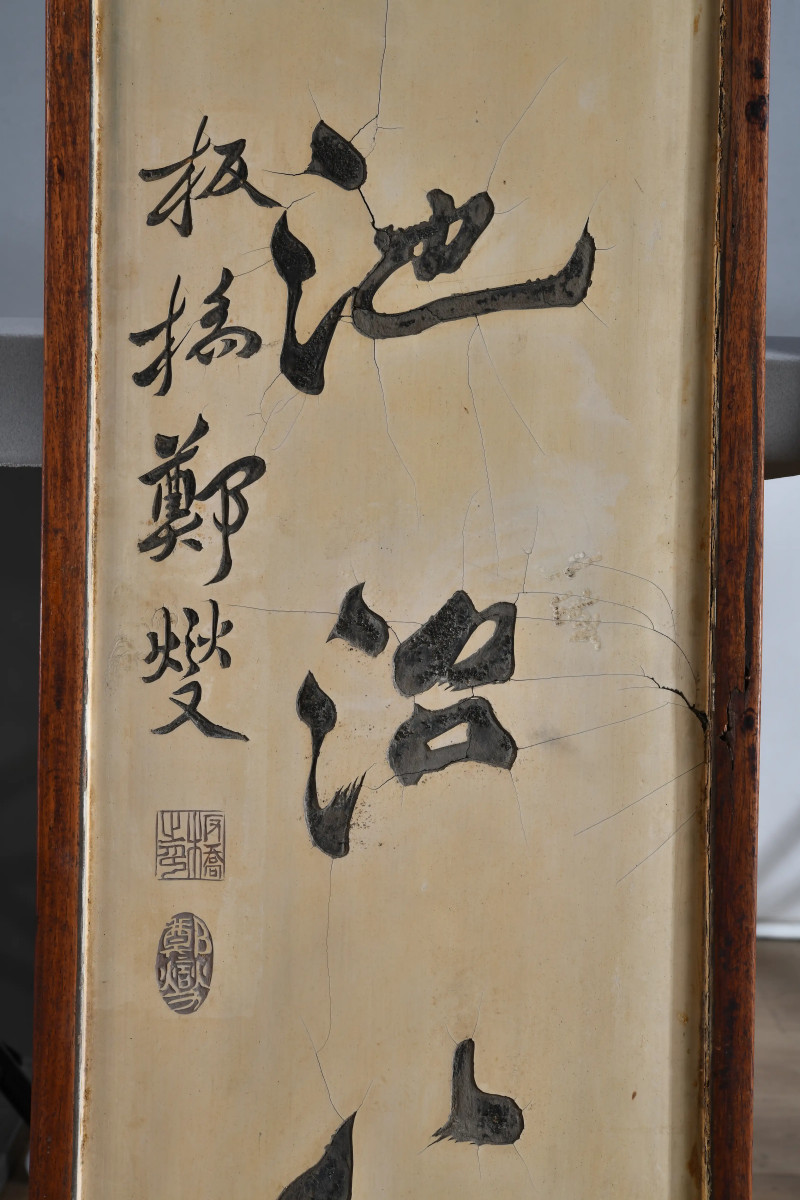 池治
板橋鄭燮
板橋之印
鄭燮